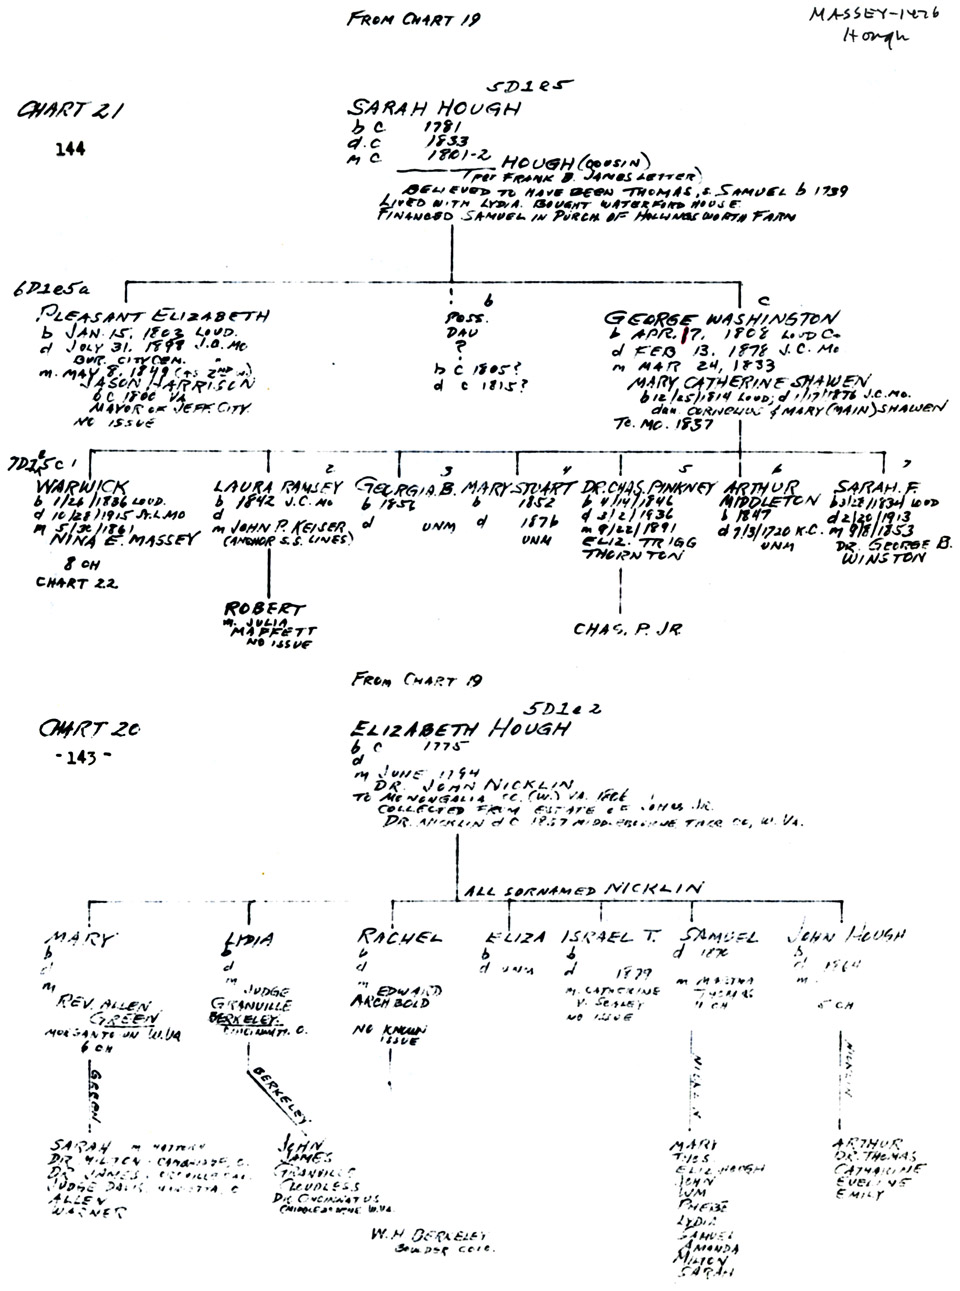 FROM CHART 19
MASSEY-1476
Hough
CHART 21
144
5D1e5
SARAH HOUGH
b c 1781
d.c 1833
m c 1801-2
HOUGH (COUSIN)
(per FRANK B. JAMES LETTER)
BELIEVED TO HAVE BEEN THOMAS, s. SAMUEL b 1739
LIVED WITH LYDIA. BOUGHT WATERFORD HOUSE
FINANCED SAMUEL IN PURCH OF HOLLINGSWORTH FARM
6D1e5a
PLEASANT ELIZABETH
b JAN. 15, 1803 LOUD.
d JULY 31, 1898 J.C. MO
BUR. CITY CEM. "
m. MAY 8, 1849 (AS 2ND W)
JASON HARRISON
b c 1800 VA
MAYOR OF JEFF. CITY.
NO ISSUE
b
POSS.
DAU
?
b c 1805?
d c 1815?
c
GEORGE WASHINGTON
b APR. 17, 1808 LOUD CO
d FEB 13, 1878 J.C. MO
m MAR 24, 1833
MARY CATHERINE SHAWEN
b 12/25/1814 LOUD; d 1/17/1876 J.C. MO.
dau. CORNELIUS & MARY (MAIN) SHAWEN
TO MO. 1837
7D1e5c 1
WARWICK
b 1/26/1836 LOUD.
d 10/28/1915 St. L. MO
m 5/30/1861
NINA E. MASSEY
8 CH
CHART 22
2
LAURA RAMSEY
b 1842 J.C. MO
d
m JOHN P. KEISER
(ANCHOR S.S. LINES)
ROBERT
m. JULIA
MAFFETT
NO ISSUE
3
GEORGIA B.
b 1851
d UNM
4
MARY STUART
b 1852
d 1876
UNM
5
DR. CHAS. PINKNEY
b 4/14/1846
d 3/2/1936
m 9/22/1891
ELIZ. TRIGG
THORNTON
CHAS. P. JR
6
ARTHUR
MIDDLETON
b 1847
d 7/3/1720 K.C.
UNM
7
SARAH F.
b 3/28/1834 LOUD
d 2/20/1913
m 9/8/1853
DR. GEORGE B.
WINSTON
FROM CHART 19
CHART 20
- 143 -
5D1e2
ELIZABETH HOUGH
b c 1775
d
m JUNE 1794
DR. JOHN NICKLIN
TO MONONGALIA CO. (W.) VA. 1806
COLLECTED FROM ESTATE OF JOHN JR.
DR. NICKLIN d C 1857 MIDDLEBOURNE TYLER CO, W. VA.
ALL SORNAMED NICKLIN
MARY
b
d
m
REV. ALLEN
GREEN
MORGANTOWN W. VA
6 CH
GREEN
SARAH m
DR MILTON - CAMBRIDGE, O.
DR JAMES -
JUDGE DAVIS, MARIETTA, O
ALLEN
WARNER
LYDIA
b
d
m JUDGE
GRANVILLE
BERKELEY.
CINCINNATI. O.
BERKELEY
JOHN
JAMES
GRANVILLE
CLOUDLESS
DR. CINCINNATUS
(MIDDLEBOURNE W. VA.
RACHEL
b
d
m EDWARD
ARCHBOLD
NO KNOWN
ISSUE
W.H BERKELEY
BOULDER COLO.
ELIZA
b
d UNM
ISRAEL T.
b
d 1879
m. CATHERINE
V. SCALEY
NO ISSUE
SAMUEL
d 1870
m MARTHA
THOMAS
11 CH
NICKLIN
MARY
THOS
ELIZ. HOUGH
JOHN
WM
PHEBE
LYDIA
SAMUEL
AMANDA
MILTON
SARAH
JOHN HOUGH
b
d 1864
m.
5 CH
NICKLIN
ARTHUR
DR. THOMAS
CATHARINE
EVELINE
EMILY